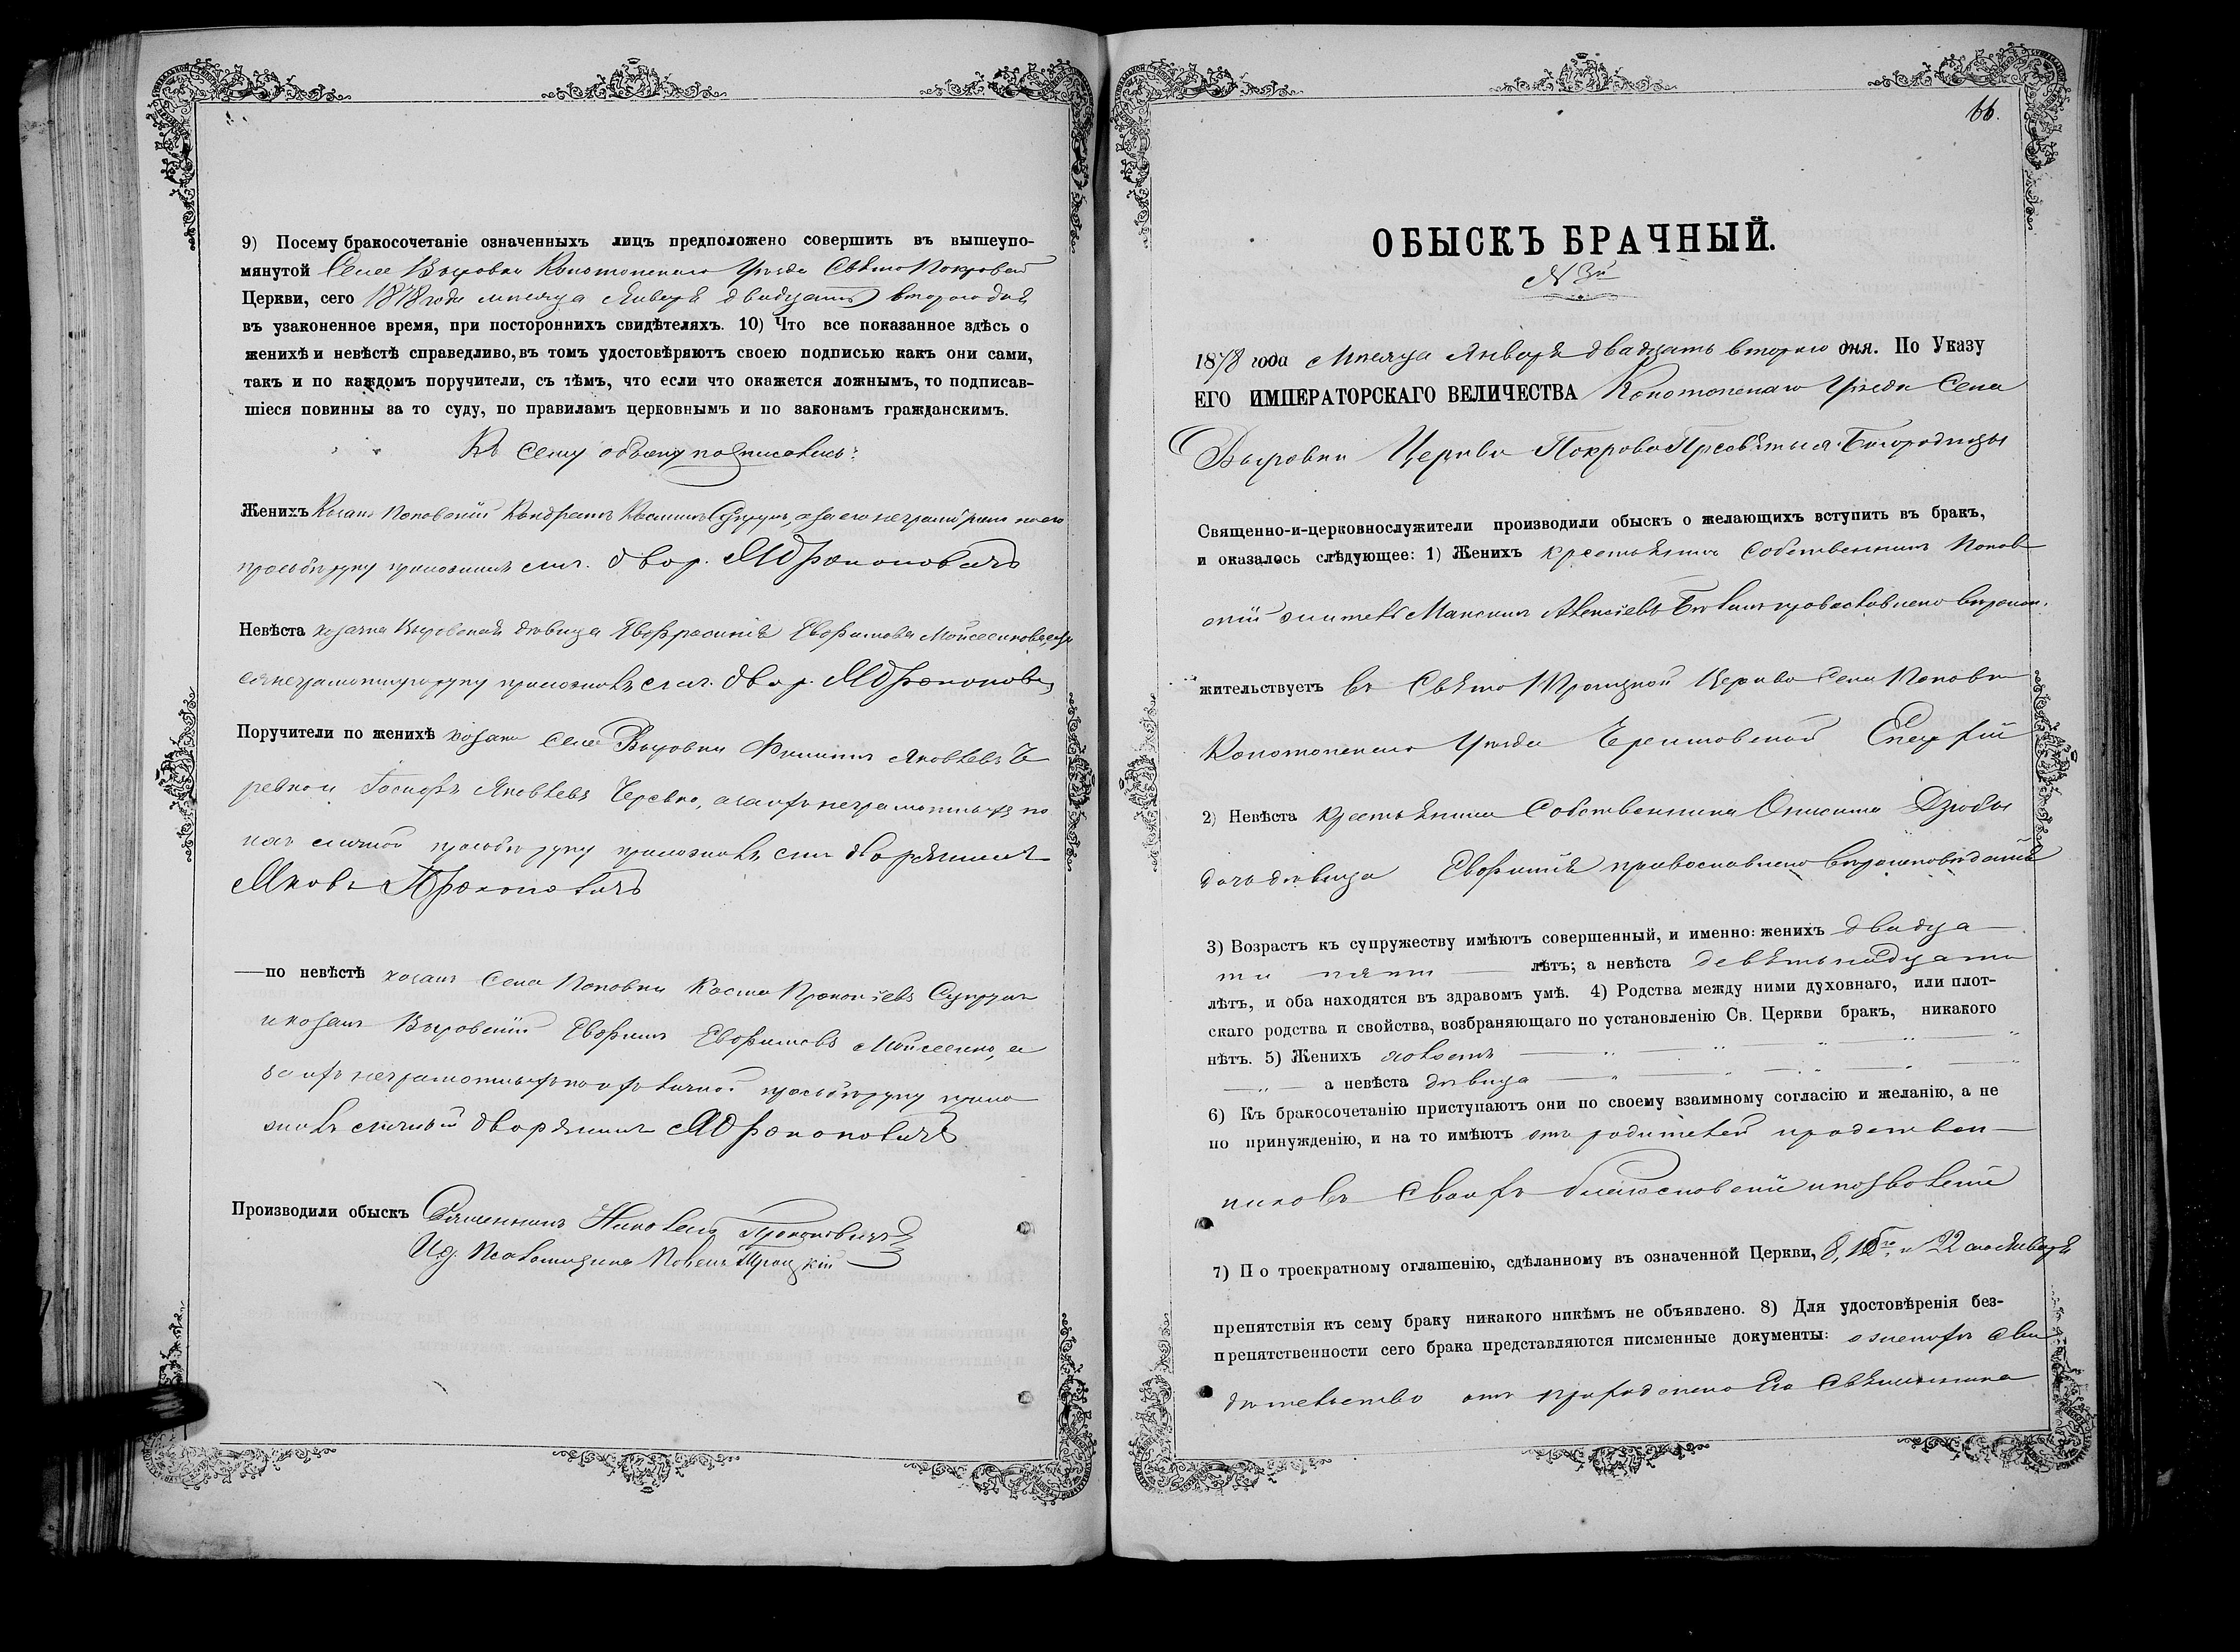 9) Посему бракосочетаніе означенныхъ лицъ предположено совершить въ вышеупо-
мянутой Селе Выровки Конотопскаго Уѣзда Свято Покровской
Церкви, сего 1878 года месяца Января двадцать второго дня
въ узаконенное время, при постороннихъ свидѣтеляхъ. 10) Что все показанное здѣсь о
женихѣ и невѣстѣ справедливо, въ томъ удостовѣряютъ своею подписью какъ они сами,
такъ и по каждомъ поручители, съ тѣмъ, что если что окажется ложнымъ, то подписав-
шіеся повинны за то суду, по правиламъ церковнымъ и по законамъ гражданскимъ.
Къ сему обыску подписались:
Женихъ Козакъ Поповскій Кондратъ Касминъ Супрунъ, а за его неграмотного по его
просьбѣ руку приложилъ двор. Я Прокоповичъ
Невѣста козачка Выровская дѣвица Евфросинія Евфимова Мойсеенкова
неграмотную руку приложилъ двор. Я Прокопович
Поручители по женихѣ козаки Села Выровки Филиппъ Яковлевъ Че
ревко и Іосифъ Яковлевъ Черевко, а за ихъ неграмотныхъ по
личной просьбѣ руку приложилъ дворянинъ
Яковъ Прокоповичъ
—по невѣстѣ козакъ Села Поповки Касма Прокопіевъ Супрунъ
и козакъ Выровскій Евфимъ Евфимовъ Мойсеенко, а
за ихъ неграмотныхъ по ихъ личной просьбѣ руку прило
жилъ дворянинъ Я Прокоповичъ
Производили обыскъ Священникъ Николай Прокоповичъ
И.д. Псаломщика Павелъ Троцкій
66.
ОБЫСКЪ БРАЧНЫЙ.
N 3й
1878 года Месяца Января двадцать второго дня. По Указу
ЕГО ИМПЕРАТОРСКАГО ВЕЛИЧЕСТВА Конотопскаго Уѣзда Села
Выровки Церкви Покрова Пресвятыя Богородицы
Священно-и-церковнослужители производили обыскъ о желающихъ вступить въ бракъ,
и оказалось слѣдующее: 1) Женихъ крестьянинъ Собственникъ Попов
скій житель Максимъ Алексіевъ православнаго вѣроисп.
жительствуетъ въ Свято Троицкой Церкви Села Поповки
Конотопскаго Уѣзда Черниговской Епархіи
2) Невѣста крестьянина Собственника Онисима Дзюбы
дочь дѣвица Евфимія православнаго вѣроисповѣданія
3) Возрастъ къ супружеству имѣютъ совершенный, и именно: женихъ двадца
ти пяти лѣтъ; а невѣста девятьнадцати
лѣтъ, и оба находятся въ здравомъ умѣ. 4) Родства между ними духовнаго, или плот-
скаго родства и свойства, возбраняющаго по установленію Св. Церкви бракъ, никакого
нѣтъ. 5) Женихъ холостъ
а невѣста дѣвица
6) Къ бракосочетанію приступаютъ они по своему взаимному согласію и желанію, а не
по принужденію, и на то имѣютъ отъ родителей и родствен—
никовъ своихъ благословеніе и позволеніе
7) По троекратному оглашенію, сдѣланному въ означенной Церкви, 8, 15го и 22 Января
препятствія къ сему браку никакого никѣмъ не объявлено. 8) Для удостовѣренія без-
препятственности сего брака представляются писменные документы: о женихѣ сви
дѣтельство отъ приходскаго Его Священника